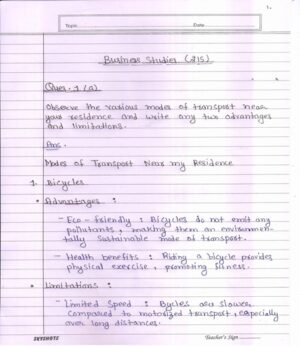 1.
Topic
Date
Business Studies (215)
Ques. 1 (a)
Observe the various modes of transport near
your residence and write any two advantages
and limitations.
Ans.
Modes of Transport Near my Residence
1. Bicycles
• Advantages :
- Eco - friendly : Bicycles do not emit any
pollutants, making them an environmen-
tally sustainable mode of transport.
- Health benefits : Riding a bicycle provides
physical exercise, promoting fitness.
• Limitations :
- Limited Speed : Bycles are slower
compared to motorized transport, especially
over long distances.
SKYNOTE
Teacher's Sign